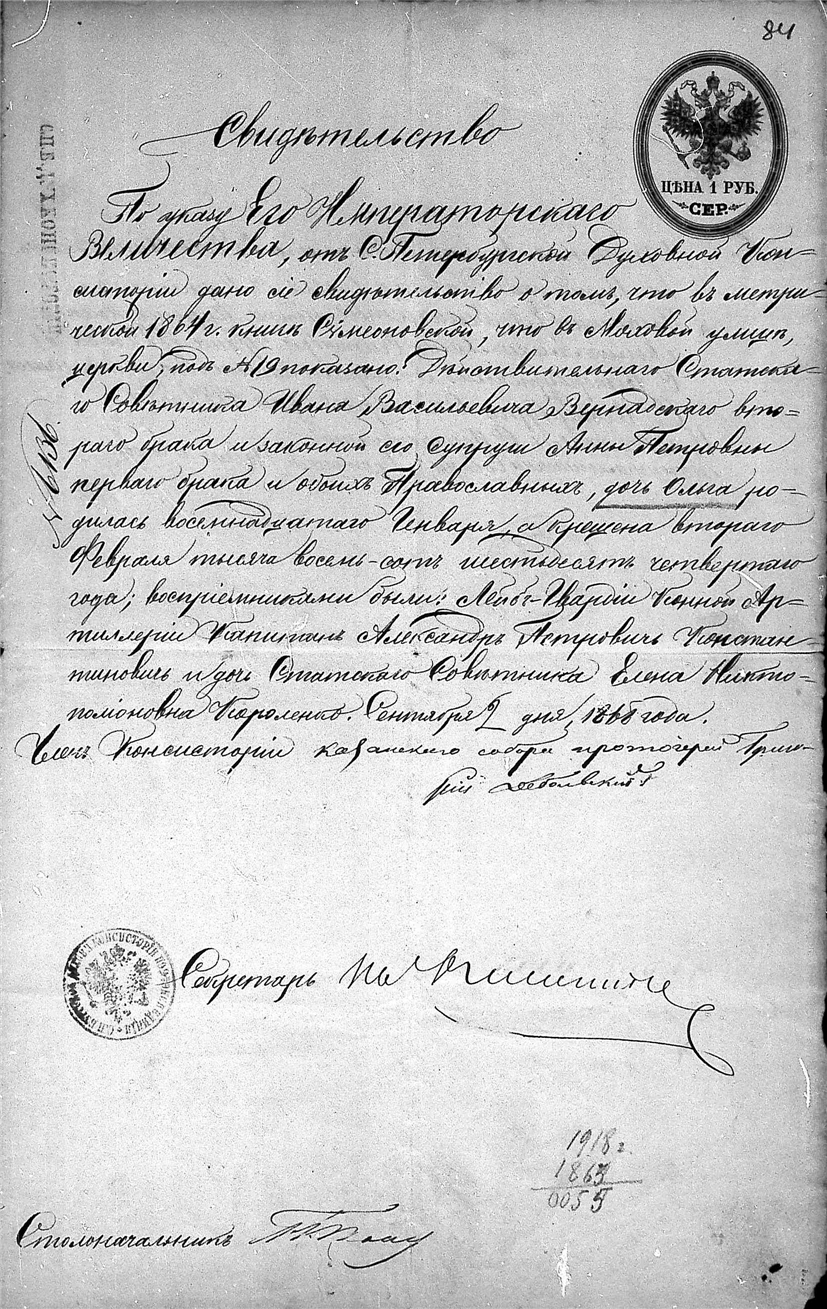 84
ЦѢНА 1 РУБ.
СЕР.
Свидѣтельство
По указу Его Императорскаго
Величества, отъ С. Петербургской Духовной Кон-
систоріи дано сіе свидѣтельство о томъ, что въ метри-
ческой 1864 г. книгѣ Симеоновской, что въ Моховой улицѣ,
церкви, подъ № 19 показано: Дѣйствительнаго Статска-
го Совѣтника Ивана Васильевича Вернадскаго вто-
раго брака и законной его супруги Анны Петровны
перваго брака и обоихъ Православныхъ, дочь Ольга ро-
дилась восемнадцатаго Генваря, а крещена втораго
Февраля тысяча восемь-сотъ шестьдесятъ четвертаго
года; воспріемниками были: Лейбъ-Гвардіи Конной Ар-
тиллеріи Капитанъ Александръ Петровичъ Констан-
тиновичъ и дочь Статскаго Совѣтника Елена Никто-
поліоновна Короленко. Сентября 2 дня, 1868 года.
Членъ Консисторіи казанскаго собора протоіерей Григо-
рій Дебольскій
Секретарь
1918 г.
1863
0055
Столоначальникъ